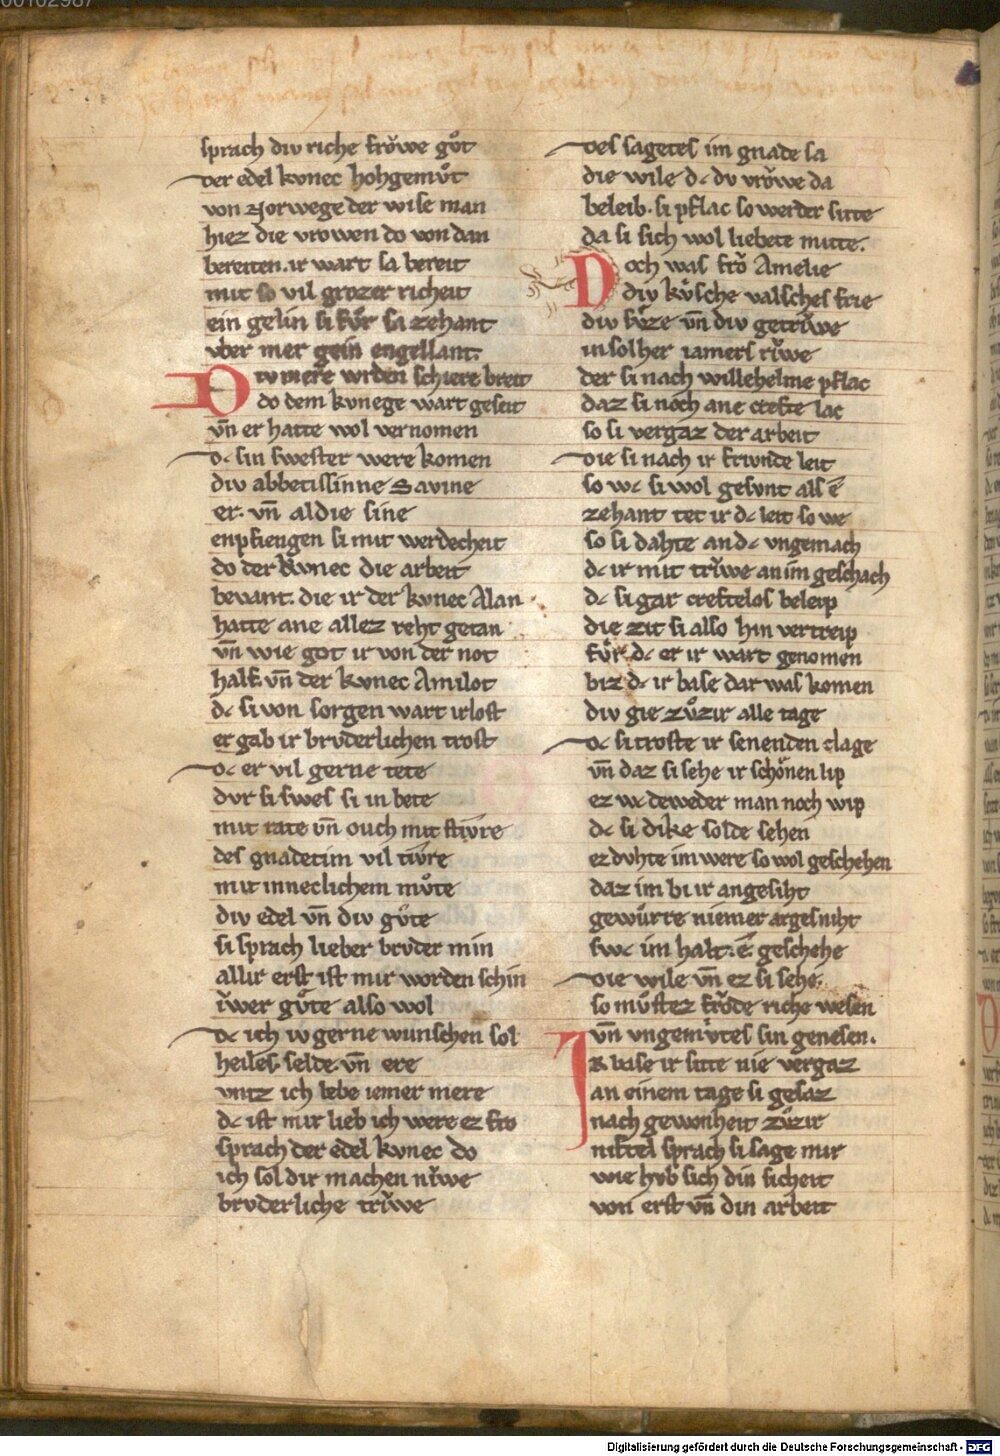 sprach div riche frǒwe gůt
der edel kvnec hohgemůt
von Norwege der wise man
hiez die vrowen do von dan
bereiten. ir wart sa bereit
mit so vil grozer richeit
ein gesin si fůr sa zehant
vber mer gein engellant.
Div mere wrden schiere breit
do dem kvnege wart geseit
vn̄ er hatte wol vernomen
dc sin swester were komen
div abbetissinne Savine
er. vn̄ al die sine
enpfiengen si mit werdecheit
do der kvnec die arbeit
bevant. die ir der kvnec Alan
hatte ane allez reht getan
vn̄ wie got ir von der not
half. vn̄ der kvnec Amilot
dc si von sorgen wart irlost
er gab ir brvderlichen trost
dc er vil gerne tete
dvr si swes si in bete
mit rate vn̄ ouch mit stivre
des gnadet im vil tivre
mit inneclichem můte
div edel vn̄ div gůte
si sprach lieber brvder min
allir erst ist mir worden schin
ǐwer gůte also wol
dc ich iv gerne wunschen sol
heiles. selde. vn̄ ere
vntz ich lebe iemer mere
dc ist mir lieb ich were ez fro
sprach der edel kvnec do
ich sol dir machen nǐwe
brvderliche trǐwe
des sagetes im gnade sa
die wile dc dv vrǒwe da
beleib. si pflac so werder sitte
da si sich wol liebete mitte.
Doch was frǒ Amelie
div kůsche valsches frie
div sůze vn̄ div getrǐwe
in solher iamers rǐwe
der si nach willehelme pflac
daz si noch ane crefte lac
so si vergaz der arbeit
die si nach ir frivnde leit
so wc si wol gesvnt als ē
zehant tet ir dc leit so we
so si dahte an dc vngemach
dc ir mit trǐwe an im geschach
dc si gar creftelos beleip
die zit si also hin vertreip
fůr dc er ir wart genomen
biz dc ir base dar was komen
div gie zůzir alle tage
dc si troste ir senenden clage
vn̄ daz si sehe ir schǒnen lip
ez wc deweder man noch wip
dc si dike solde sehen
ez dvhte im were so wol geschehen
daz im bi ir angesiht
gewůrre niemer arges niht
swc im halt. ē. geschehe
die wile vn̄ ez si sehe.
so můstez frǒde riche wesen
vn̄ vngemůtes sin genesen.
Ir base ir sitte nie vergaz
an einem tage si gesaz
nach gewonheit zůzir
niftel sprach si sage mir
wie hvb sich din sicheit
von erst vn̄ din arbeit
Digitalisierung gefördert durch die Deutsche Forschungsgemeinschaft - DFG